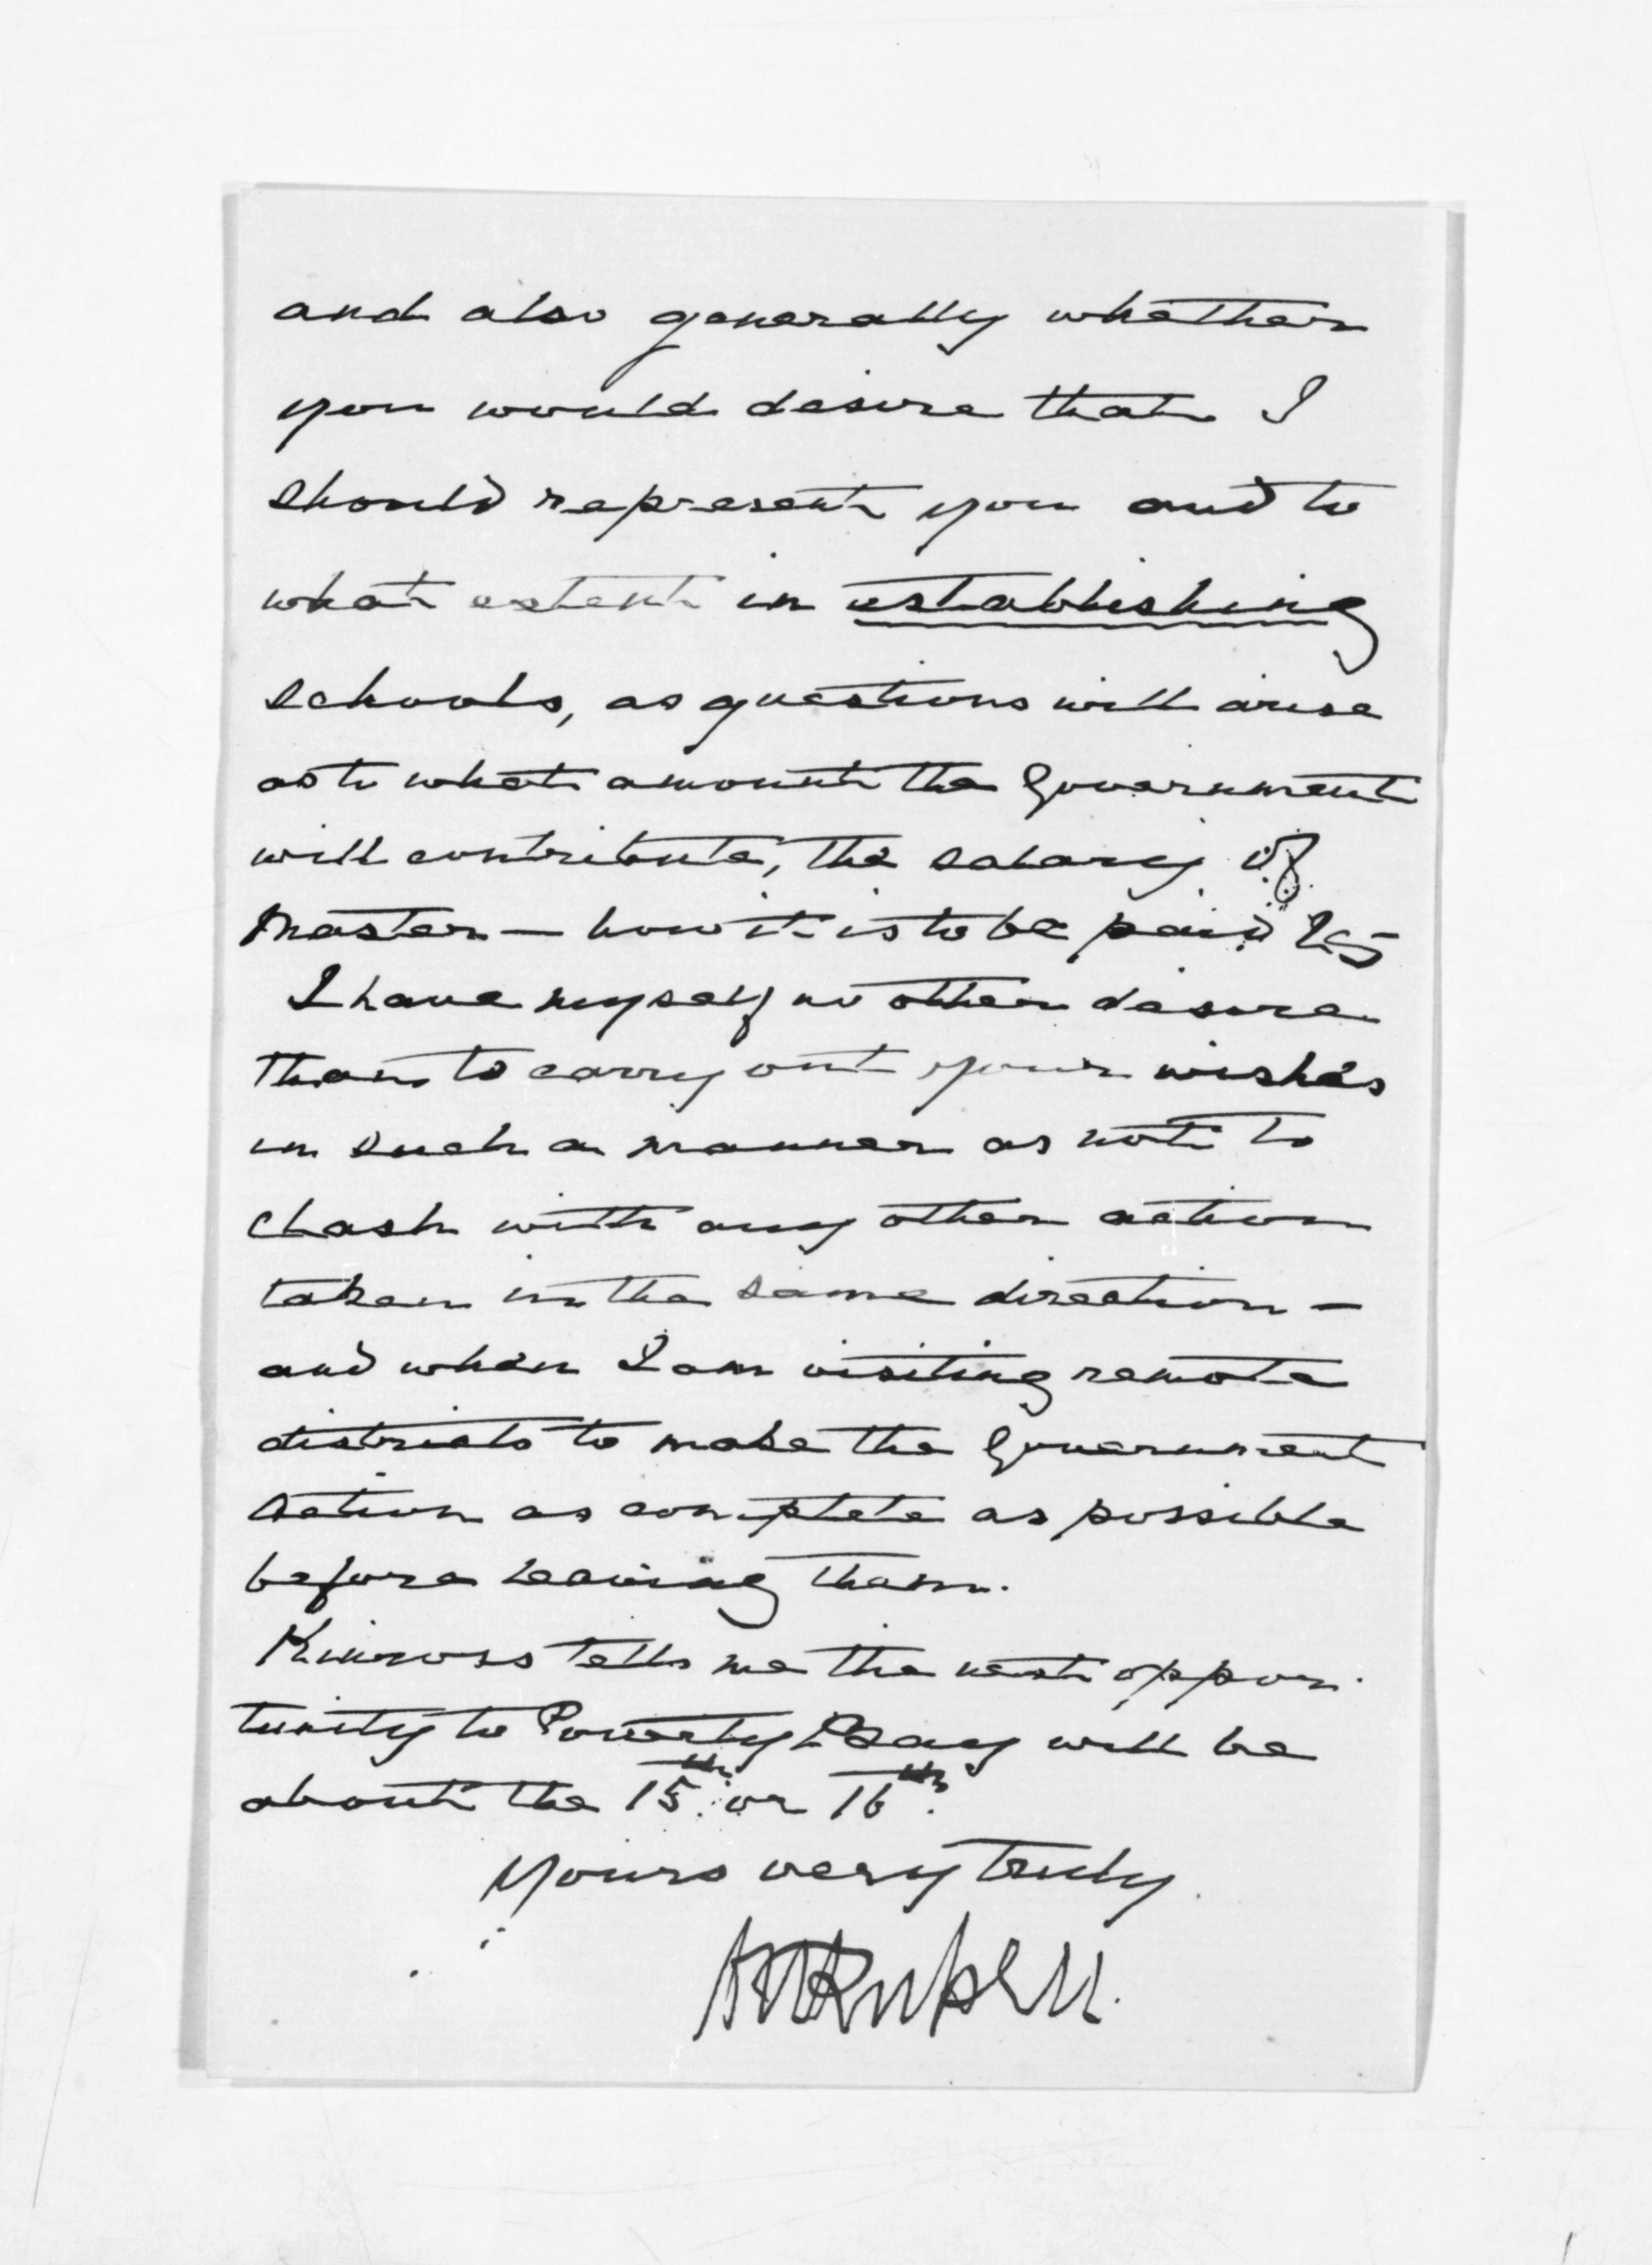 and also generally whether
you would desire that I
should represent you and to
what extent in establishing
schools, as questions will arise
as to what amount the Government
will contribute, the salary of
Master — how it is to be paid &c
I have myself no other desire
than to carry out your wishes
in such a manner as not to
clash with any other action
taken in the same direction —
and when I am visiting remote
districts to make the Government
action as complete as possible
before leaving them.
Kinross tells me the next oppor-
tunity to Poverty Bay will be
about the 15th or 16th.
Yours very truly
Russell.